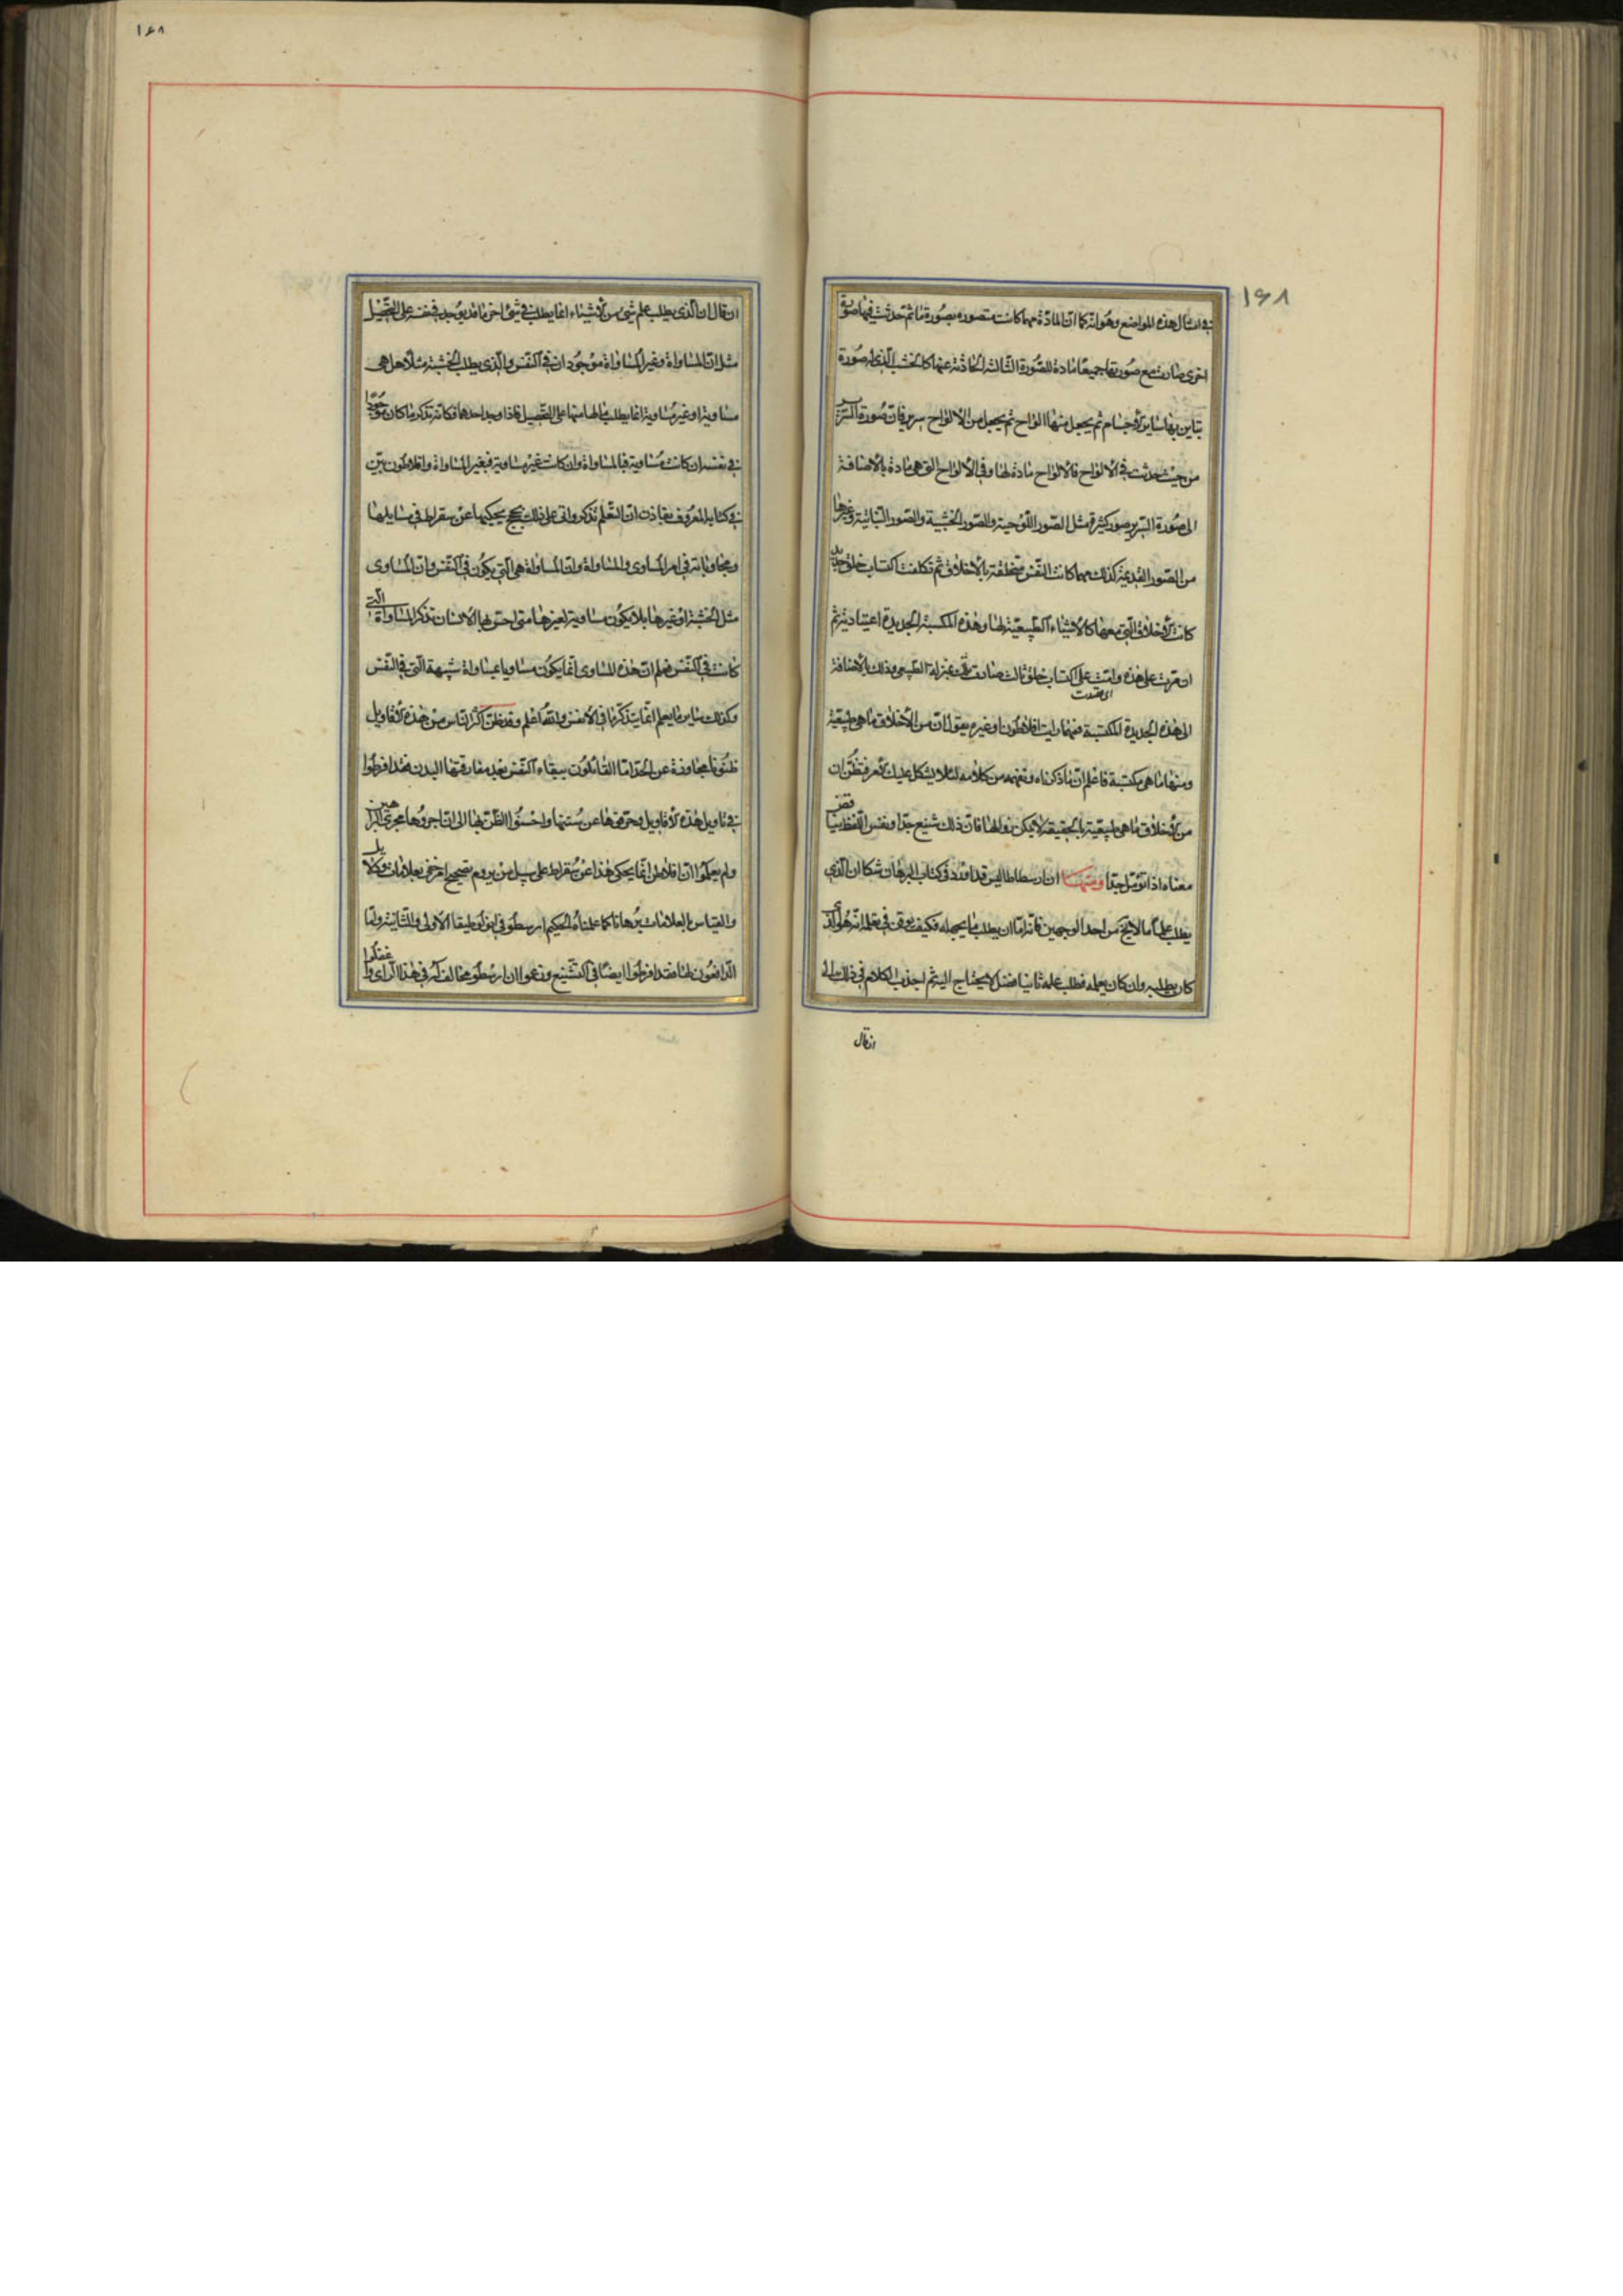 ١٦٨
في امثال هذه المواضع وهو انه كما ان المادة مهما كانت متصوره بصورة ما ثم حدثت فيها صورة
اخرى صارت مع صورتها جميعا مادة للصورة الثالثة الحادثة عنها كالخشب الذي له صورة
تباين بها ساير الاجسام ثم يجعل منها الواح ثم يجعل من الالواح سرير فان صورة السرير
من حيث حدثت في الالواح فالالواح مادة لها وفي الالواح التي هي مادة بالاضافة
الى صورة السرير صور كثيرة مثل الصور اللوحية والصور الخشبية والصور النباتية وغيرها
من الصور القديمة كذلك مهما كانت النفس متخلقة بالاخلاق ثم تكلفت اكتساب خلق جديد
كانت الاخلاق التي معها كالاشياء الطبيعية لها وهذه المكتسبة الجديدة اعتيادية ثم
ان مرت على هذه ودامت على اكتساب خلق ثالث صارت تلك بمنزلة الطبيعي وذلك بالاضافة
الى هذه الجديدة المكتسبة فمهما رايت افلاطون او غيره يقول ان من الاخلاق ما هي طبيعية
ومنها ما هي مكتسبة فاعلم ان ما ذكرناه وتفهمه من كلامه لئلا يشكل عليك الامر فتظن ان
من الاخلاق ما هي طبيعية بالحقيقة لا يمكن زوالها فان ذلك شنيع جدا ونفس اللفظ يناقض
معناه اذا تؤمل جدا ومنها ان ارسطاطاليس قد اورد في كتاب البرهان شكا ان الذي
يطلب علما ما لا يخ من احد الوجهين فانه اما ان يطلب ما يجهله فكيف يوقن في تعلمه انه هو الذي
كان يطلبه وان كان يعلمه فطلبه علمه ثانيا فضل لا يحتاج اليه ثم اجذب الكلام في ذلك الى
ان قال
١٦٨
ان قال ان الذي يطلب علم شئ من الاشياء انما يطلب في شئ اخر ما قد يوجد في نفسه على التحصيل
مثل ان المساواة وغير المساواة موجودان في النفس والذي يطلب الخشبة مثلا هل هي
مساوية او غير مساوية انما يطلب ما لها منها على التحصيل فاذا وجد احدهما فكانه تذكر ما كان موجودا
في نفسه ان كانت مساوية فبالمساواة وان كانت غير مساوية فبغير المساواة وافلاطون بين
في كتابه المعروف بفاذن ان التعلم تذكر واتى على ذلك بحجج يحكيها عن سقراط في مسايلها
ومجاوباته في امر المساوي والمساواة وان المساواة هي التي يكون في النفس وان المساوي
مثل الخشبة او غيرها مما يكون مساوية لغيرها متى احس بها الانسان تذكر المساواة التي
كانت في النفس فعلم ان هذه المساوي انما يكون مساويا بمساواة شبيهة التي في النفس
وكذلك ساير ما يعلم انما يتذكر ما في الانفس والله اعلم وقد ظن اكثر الناس من هذه الاقاويل
ظنونا مجاوزة عن الحد اما القائلون ببقاء النفس بعد مفارقتها البدن فقد افرطوا
في تاويل هذه الاقاويل وحرفوها عن سننها واحسنوا الظن بها الى ان اجروها مجرى البراهين
ولم يعلموا ان افلاطن انما يحكي هذا عن سقراط على سبيل من يروم تصحيح امر خفي بعلامات ودلايل
والقياس بالعلامات لا يكون برهانا كما علمناه الحكيم ارسطو في انولوطيقا الاولى والثانية واما
الدافعون لها فقد افرطوا ايضا في التشنيع وزعموا ان ارسطو مخالف له في هذا الراي واغفلوا